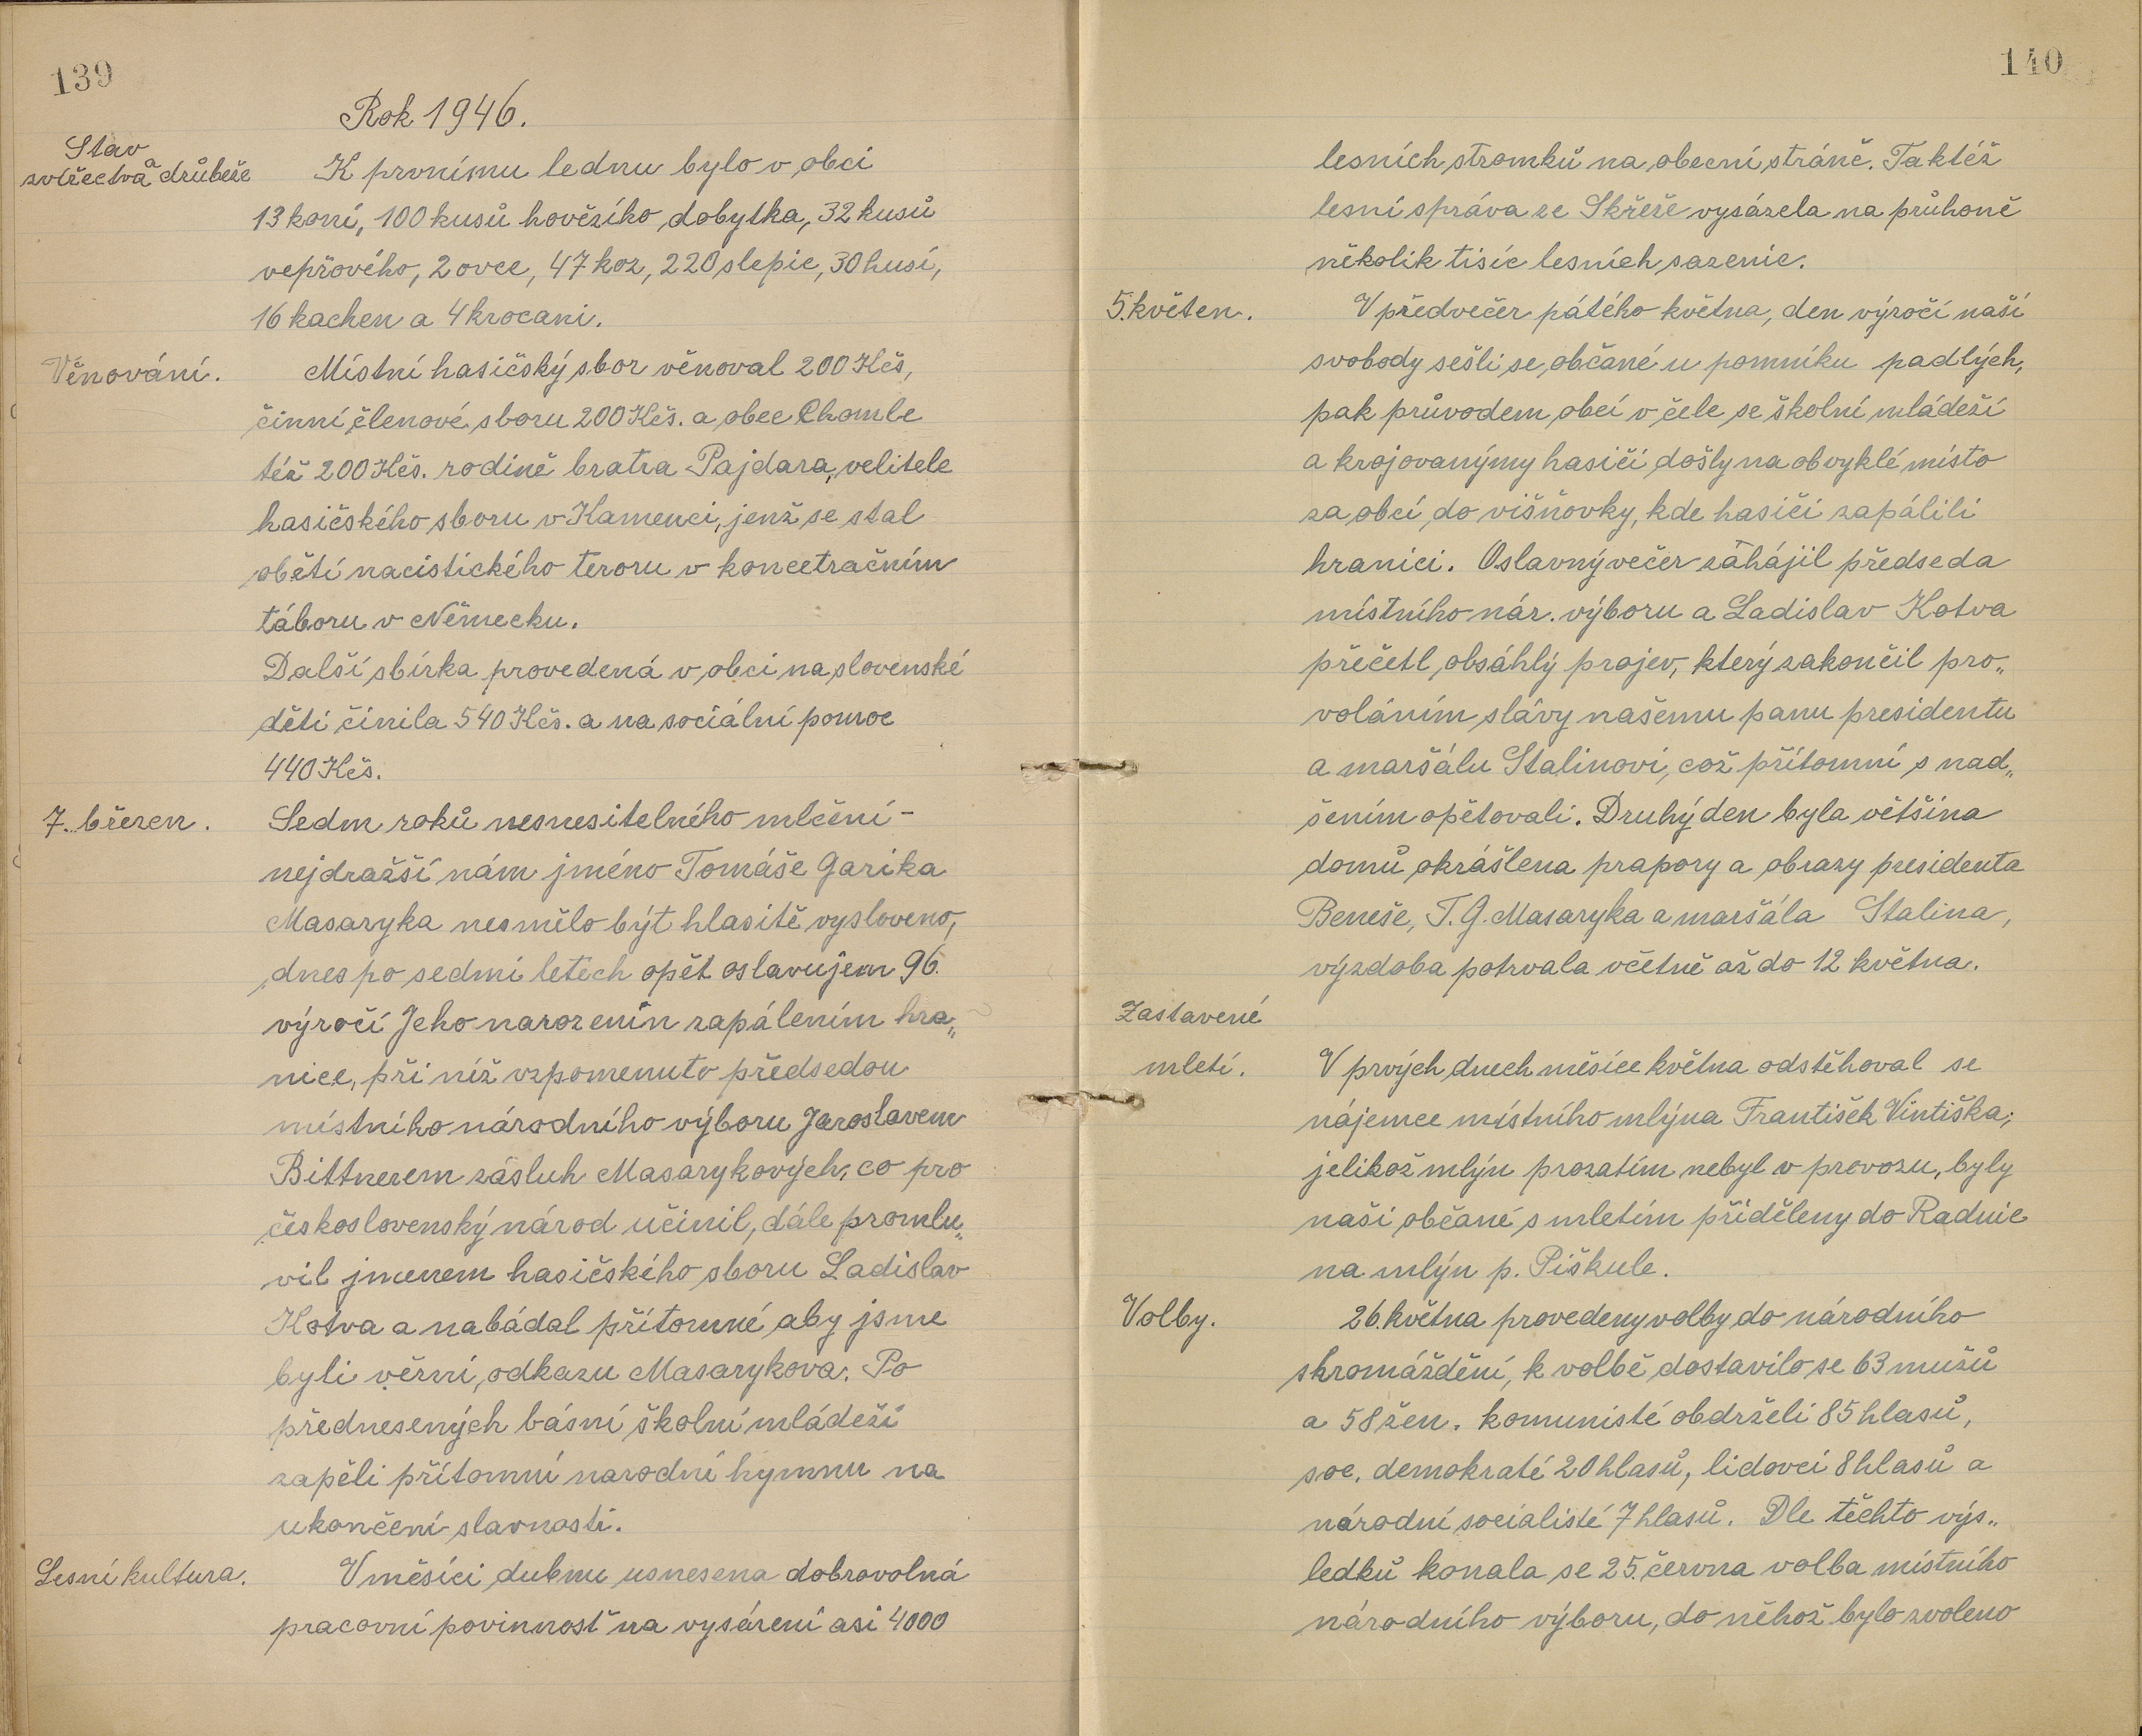 139
Rok 1946.
Stav
zvířectva a drůbeže
K prvnímu lednu bylo v obci
13 koní, 100 kusů hovězího dobytka, 32 kusů
vepřového, 2 ovce, 47 koz, 220 slepic, 30 husí,
16 kachen a 4 krocani.
Věnování.
Místní hasičský sbor věnoval 200 Kčs,
činní členové sboru 200 Kčs. a obec Chomle
též 200 Kčs. rodině bratra Pajdara, velitele
hasičského sboru v Kamenci, jenž se stal
obětí nacistického teroru v koncetračním
táboru v Německu.
Další sbírka provedená v obci na slovenské
děti činila 540 Kčs. a na sociální pomoc
440 Kčs.
7. březen.
Sedm roků nesnesitelného mlčení -
nejdražší nám jméno Tomáše Garika
Masaryka nesmělo být hlasitě vysloveno,
dnes po sedmi letech opět oslavujem 96.
výročí Jeho narozenin zapálením hra„
nice, při níž vzpomenuto předsedou
místního národního výboru Jaroslavem
Bittnerem zásluh Masarykových, co pro
československý národ učinil, dále promlu„
vil jmenem hasičského sboru Ladislav
Kotva a nabádal přítomné aby jsme
byli věrni odkazu Masarykova. Po
přednesených básní školní mládeží
zapěli přítomní narodní hymnu na
ukončení slavnosti.
Lesní kultura.
V měsíci dubnu usnesena dobrovolná
pracovní povinnosť na vysázení asi 4000
140
lesních stromků na obecní stráně. Taktéž
lesní správa ze Skřeše vysázela na průhoně
několik tisíc lesních sazenic.
5. květen.
V předvečer pátého května, den výročí naší
svobody sešli se občané u pomníku padlých,
pak průvodem obcí v čele se školní mládeží
a krojovanýmy hasiči došly na obvyklé místo
za obcí do višňovky, kde hasiči zapálili
hranici. Oslavný večer zahájil předseda
místního nár. výboru a Ladislav Kotva
přečetl obsáhlý projev, který zakončil pro„
voláním slávy našemu panu presidentu
a maršálu Stalinovi, což přítomní s nad„
šením opětovali. Druhý den byla většina
domů okrášlena prapory a obrazy presidenta
Beneše, T. G. Masaryka a maršála Stalina,
výzdoba potrvala včetně až do 12 května.
Zastavené
mletí.
V prvých dnech měsíce května odstěhoval se
nájemce místního mlýna František Vintiška;
jelikož mlýn prozatím nebyl v provozu, byly
naši občané s mletím přiděleny do Radnic
na mlýn p. Piškule.
Volby.
26. května provedeny volby do národního
shromáždění, k volbě dostavilo se 63 mužů
a 58 žen. komunisté obdrželi 85 hlasů,
soc. demokraté 20 hlasů, lidovci 8 hlasů a
národní socialisté 7 hlasů. Dle těchto výs„
ledků konala se 25. června volba místního
národního výboru, do něhož bylo zvoleno